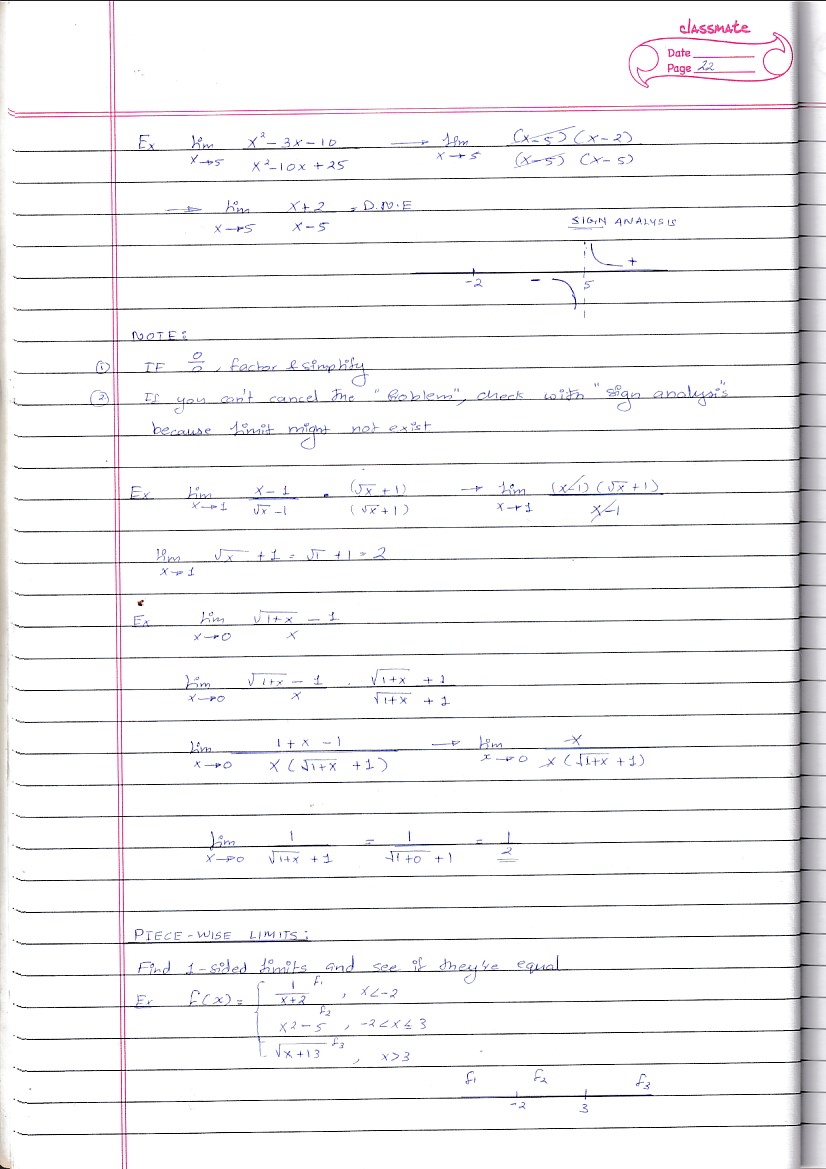 classmate
Date
Page 22
Ex lim x→5 x² - 3x - 10 / x² - 10x + 25 → lim x→5 (x-5)(x-2) / (x-5)(x-5)
→ lim x→5 x+2 / x-5 = D.N.E
SIGN ANALYSIS
-2 - 5 +
NOTE:
① IF 0/0, factor & simplify
② If you can't cancel the "Problem", check with "sign analysis"
because limit might not exist
Ex lim x→1 x-1 / √x -1 · (√x +1) / (√x +1) → lim x→1 (x-1)(√x +1) / x-1
lim x→1 √x + 1 = √1 + 1 = 2
Ex lim x→0 √1+x - 1 / x
lim x→0 √1+x - 1 / x · √1+x + 1 / √1+x + 1
lim x→0 1+x-1 / x(√1+x +1) → lim x→0 x / x(√1+x +1)
lim x→0 1 / √1+x + 1 = 1 / √1+0 + 1 = 1/2
PIECE-WISE LIMITS:
Find 1-sided limits and see if they're equal
Ex f(x) = { 1 / x+2 f₁, x<-2
x2-5 f₂, -2<x≤3
√x+13 f₃, x>3
f₁ f₂ f₃
-2 3